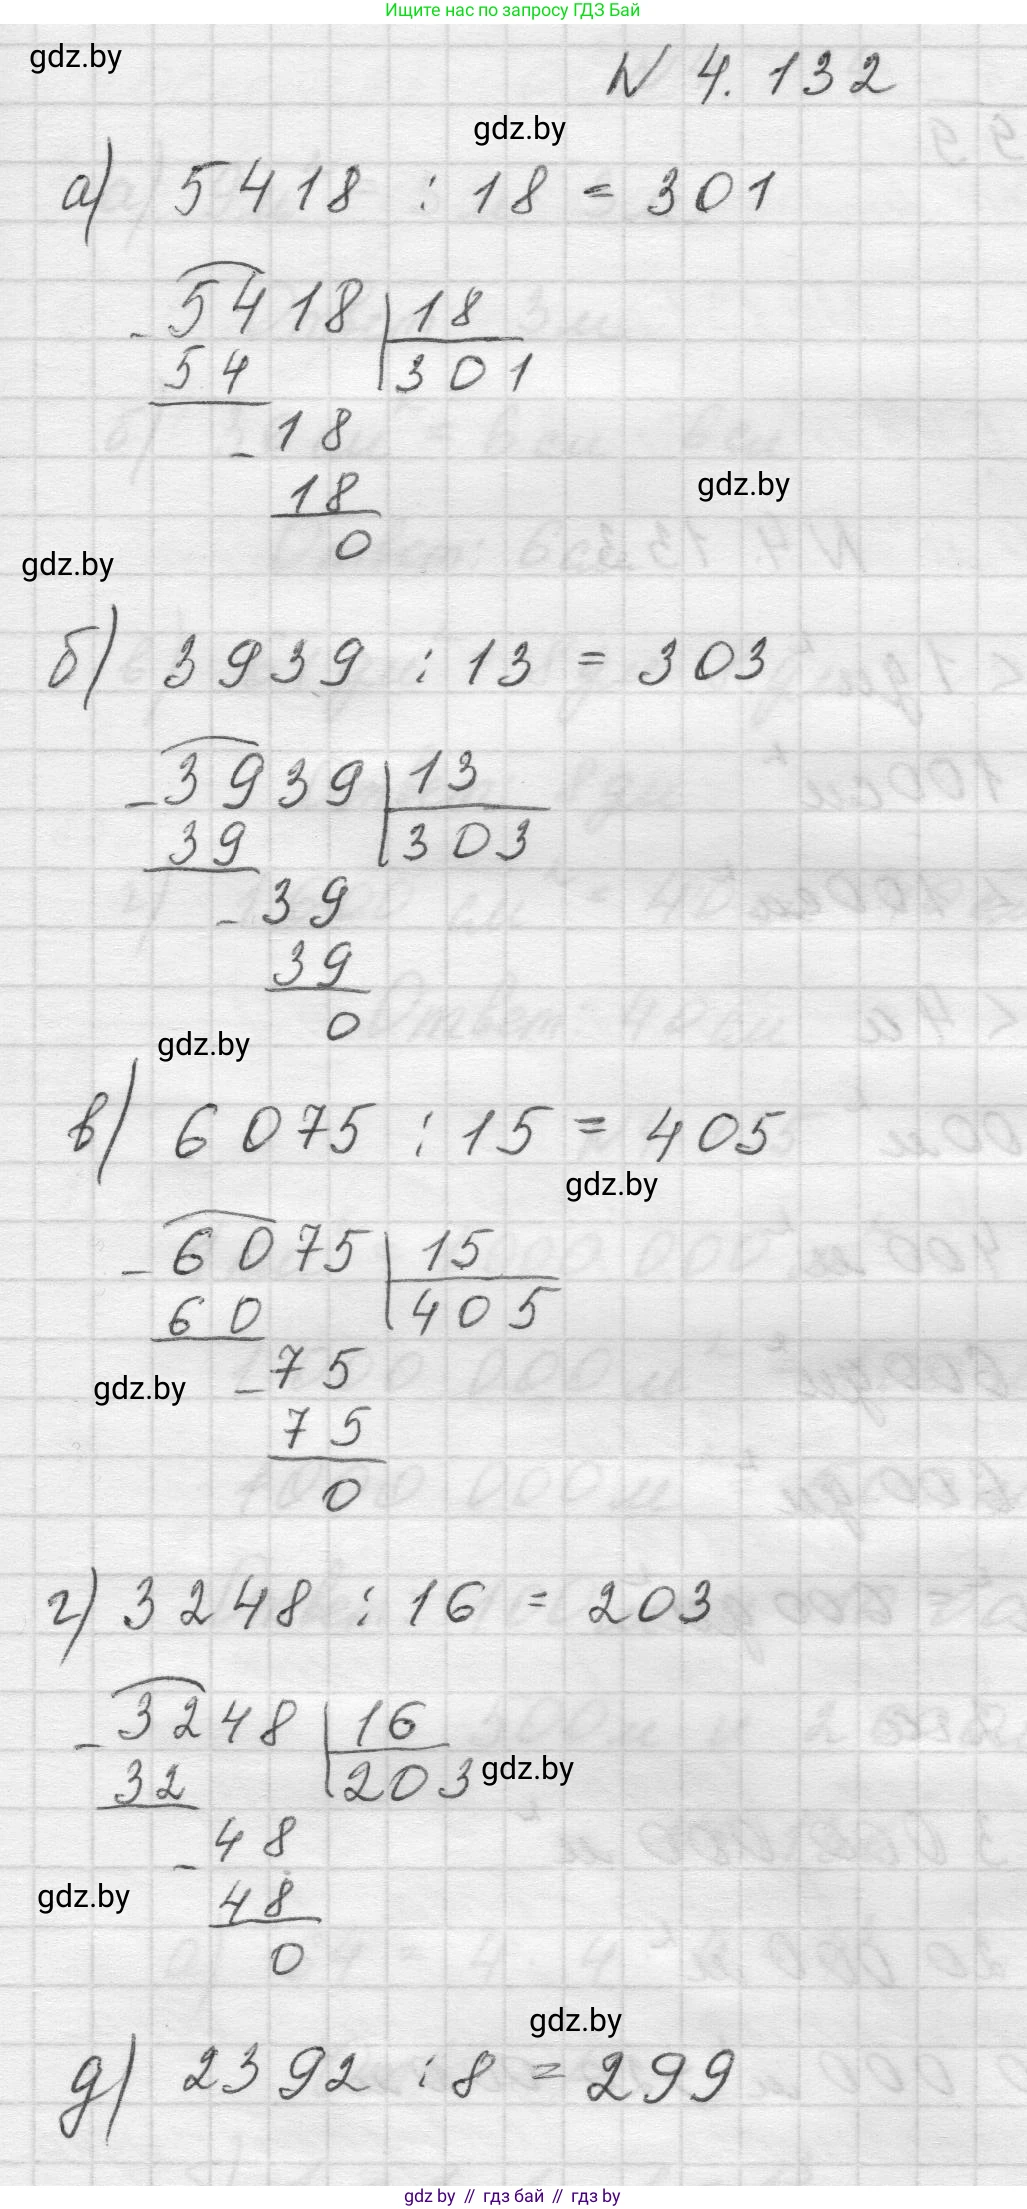 Ищите нас по запросу ГДЗ Бай
gdz.by
N 4.132
gdz.by
а) 5418 : 18 = 301
- 5418 | 18
54 | 301
- 18
18
gdz.by
0
gdz.by
б) 3939 : 13 = 303
- 3939 | 13
39 | 303
- 39
39
0
gdz.by
в) 6075 : 15 = 405
gdz.by
- 6075 | 15
60 | 405
- 75
gdz.by
75
0
г) 3248 : 16 = 203
- 3248 | 16
32 | 203
gdz.by
- 48
48
gdz.by
0
gdz.by
д) 2392 : 8 = 299
gdz.by // гдз бай // gdz.by